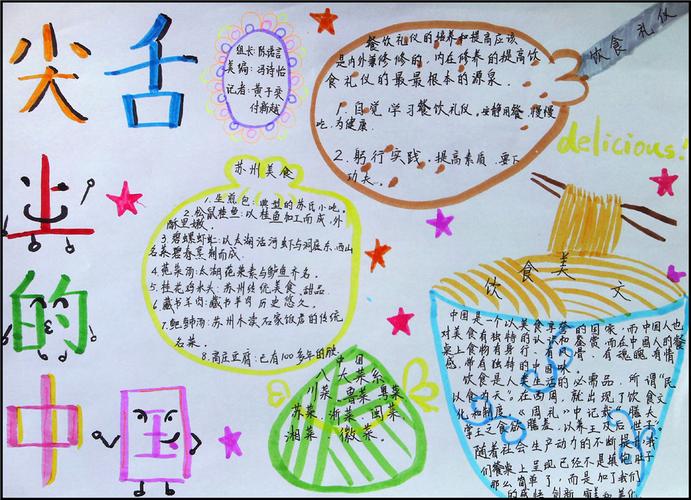 舌尖
上
的
中国
组长:陈语言
美编:冯诗怡
记者:黄子奕
付新越
饮食礼仪
餐饮礼仪的培养和提高应该
是内外兼修的,内在修养的提高饮
食礼仪的最最根本的源泉。
1. 自觉学习餐饮礼仪,安静用餐,慢慢
吃,为健康.
2. 躬行实践,提高素质,要下
功夫。
delicious!
苏州美食
1. 生煎包:典型的苏氏小吃。
2. 松鼠桂鱼:以桂鱼加工而成,外
酥里嫩。
3. 碧螺虾仁:以太湖活河虾与洞庭东西山
名菜碧春烹制而成.
4. 莼菜汤:太湖莼菜素与鲈鱼齐名。
5. 桂花鸡头米:苏州传统美食、甜品
6. 藏书羊肉:藏书羊肉历史悠久。
7. 鲃肺汤:苏州木渎石家饭店的传统
名菜。
8. 甪直豆腐:已有100多年的历
中国
八大菜系
川菜、鲁菜、粤菜
苏菜、浙菜、闽菜
湘菜、徽菜。
饮食美文
中国是一个以美食享誉的国家,而中国人也
对美食有独特的认识和鉴赏,而在中国人的餐
桌上食物有身行、有风骨、有魂魄、有情
感,带有独特的中国味。
饮食是人类生活的必需品,所谓“民
以食为天”。在西周,就出现了饮食文
化和制度。《周礼》中记载“膳夫
掌王之食饮膳羞,以养王及后世子”。
随着社会生产动力的不断提高,我
们餐桌上呈现已经不是填饱肚子
那么简单了,而是加了我们